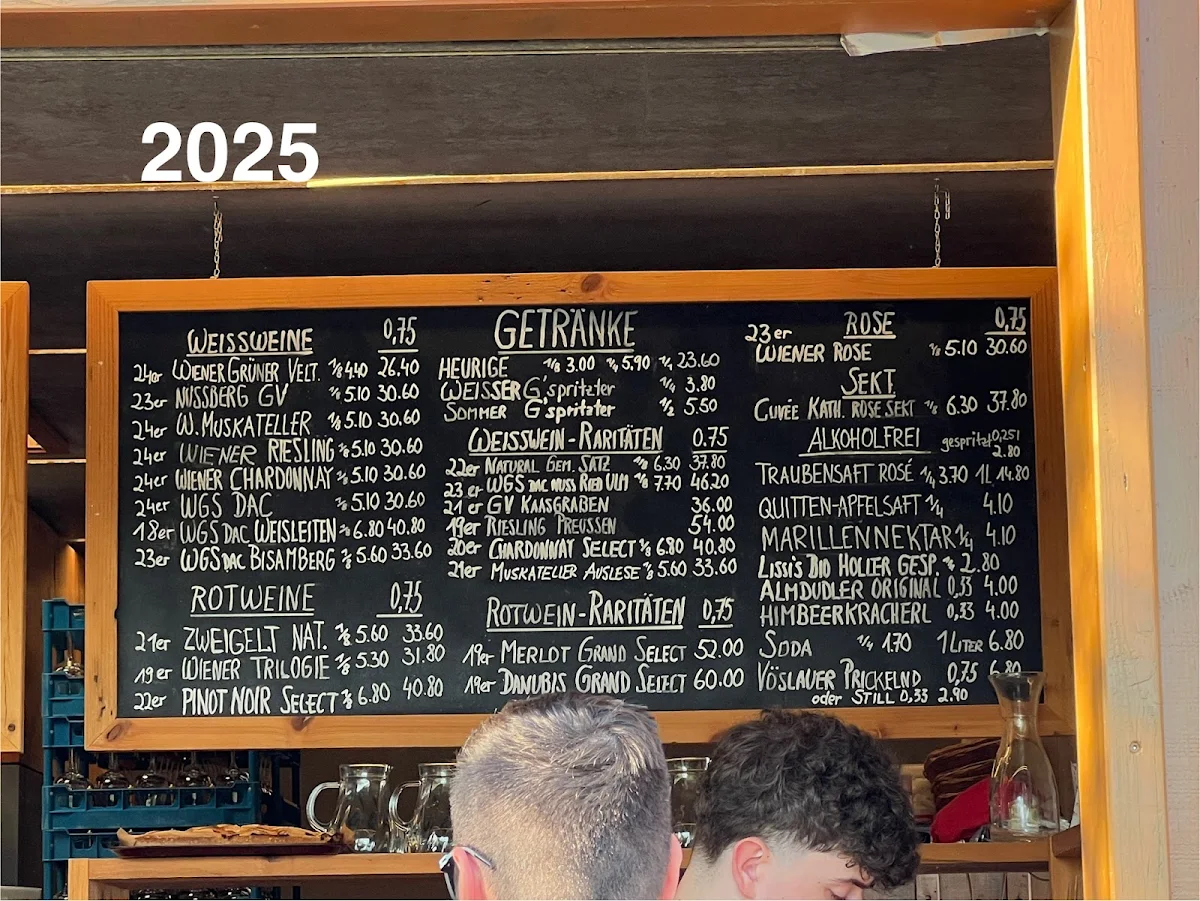 2025
WEISSWEINE 0,75
24er WIENER GRÜNER VELT. 1/8 4.40 26.40
23er NUSSBERG GV 1/8 5.10 30.60
24er W. MUSKATELLER 1/8 5.10 30.60
24er WIENER RIESLING 1/8 5.10 30.60
24er WIENER CHARDONNAY 1/8 5.10 30.60
24er WGS DAC 1/8 5.10 30.60
18er WGS DAC WEISLEITEN 1/8 6.80 40.80
23er WGS DAC BISAMBERG 1/8 5.60 33.60
ROTWEINE 0,75
21er ZWEIGELT NAT. 1/8 5.60 33.60
19er WIENER TRILOGIE 1/8 5.30 31.80
22er PINOT NOIR SELECT 1/8 6.80 40.80
GETRÄNKE
HEURIGE 1/8 3.00 1/4 5.90 1/1 23.60
WEISSER G'spritzter 1/4 3.80
SOMMER G'spritzter 1/2 5.50
WEISSWEIN-RARITÄTEN 0.75
22er NATURAL GEM. SATZ 1/8 6.30 37.80
23er WGS DAC NUSS RIED ULM 1/8 7.70 46.20
21er GV KAASGRABEN 36.00
19er RIESLING PREUSSEN 54.00
20er CHARDONNAY SELECT 1/8 6.80 40.80
21er MUSKATELLER AUSLESE 1/8 5.60 33.60
ROTWEIN-RARITÄTEN 0,75
19er MERLOT GRAND SELECT 52.00
19er DANUBIS GRAND SELECT 60.00
23er ROSE 0,75
WIENER ROSE 1/8 5.10 30.60
SEKT
CUVÉE KATH. ROSE SEKT 1/8 6.30 37.80
ALKOHOLFREI gespritzt 0,25l
2.80
TRAUBENSAFT ROSÉ 1/4 3.70 1L 14.80
QUITTEN-APFELSAFT 1/4 4.10
MARILLENNEKTAR 1/4 4.10
LISSI'S BIO HOLLER GESP. 1/4 2.80
ALMDUDLER ORIGINAL 0,33 4.00
HIMBEERKRACHERL 0,33 4.00
SODA 1/4 1.70 1 LITER 6.80
VÖSLAUER PRICKELND 0,75 6.80
oder STILL 0,33 2.90